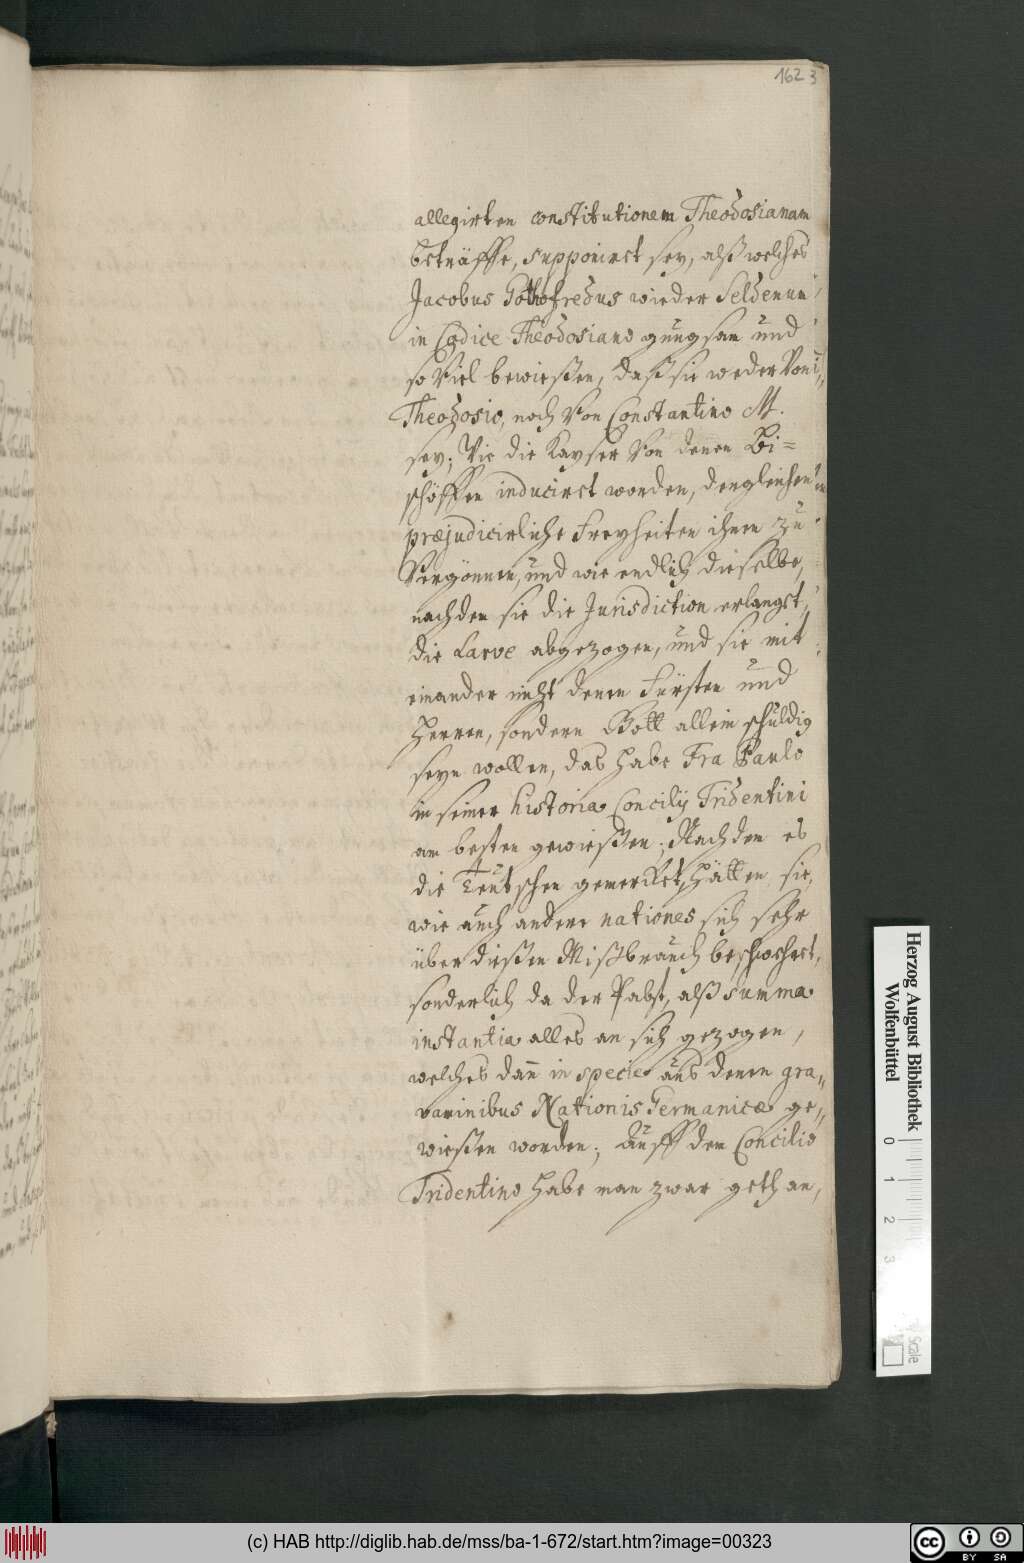 162 3
allegirten constitutionem Theodosianam
beträffe, supponiret sey, alß welches
Jacobus Gothofredus wieder Seldenum
in Codice Theodosiano gnugsam und
so viel bewießen, daß sie weder von
Theodosio, noch von Constantino M.
sey; Wie die Kayser von denen Bi=
schöffen induciret worden, dergleichen
præjudicirliche Freyheiten ihnen zu
vergönnen, und wie endlich dieselbe,
nachdem sie die Jurisdiction erlanget,
die Larve abgezogen, und sie mit
einander nicht denen Fürsten und
Herren, sondern Gott allein schuldig
seyn wollen, das habe Fra Paulo
in seiner historia Concilij Tridentini
am besten gewießen; Nachdem es
die Teutschen gemercket, hätten sie,
wie auch andere nationes sich sehr
über dießen Mißbrauch beschwehret,
sonderlich da der Pabst, alß summa
instantia alles an sich gezogen,
welches dann in specie aus denen gra„
vaminibus Nationis Germanicæ ge„
wießen worden; Auff dem Concilio
Tridentino habe man zwar gethan,
Herzog August Bibliothek
Wolfenbüttel
0 1 2 3
Scale
(c) HAB http://diglib.hab.de/mss/ba-1-672/start.htm?image=00323
cc BY SA